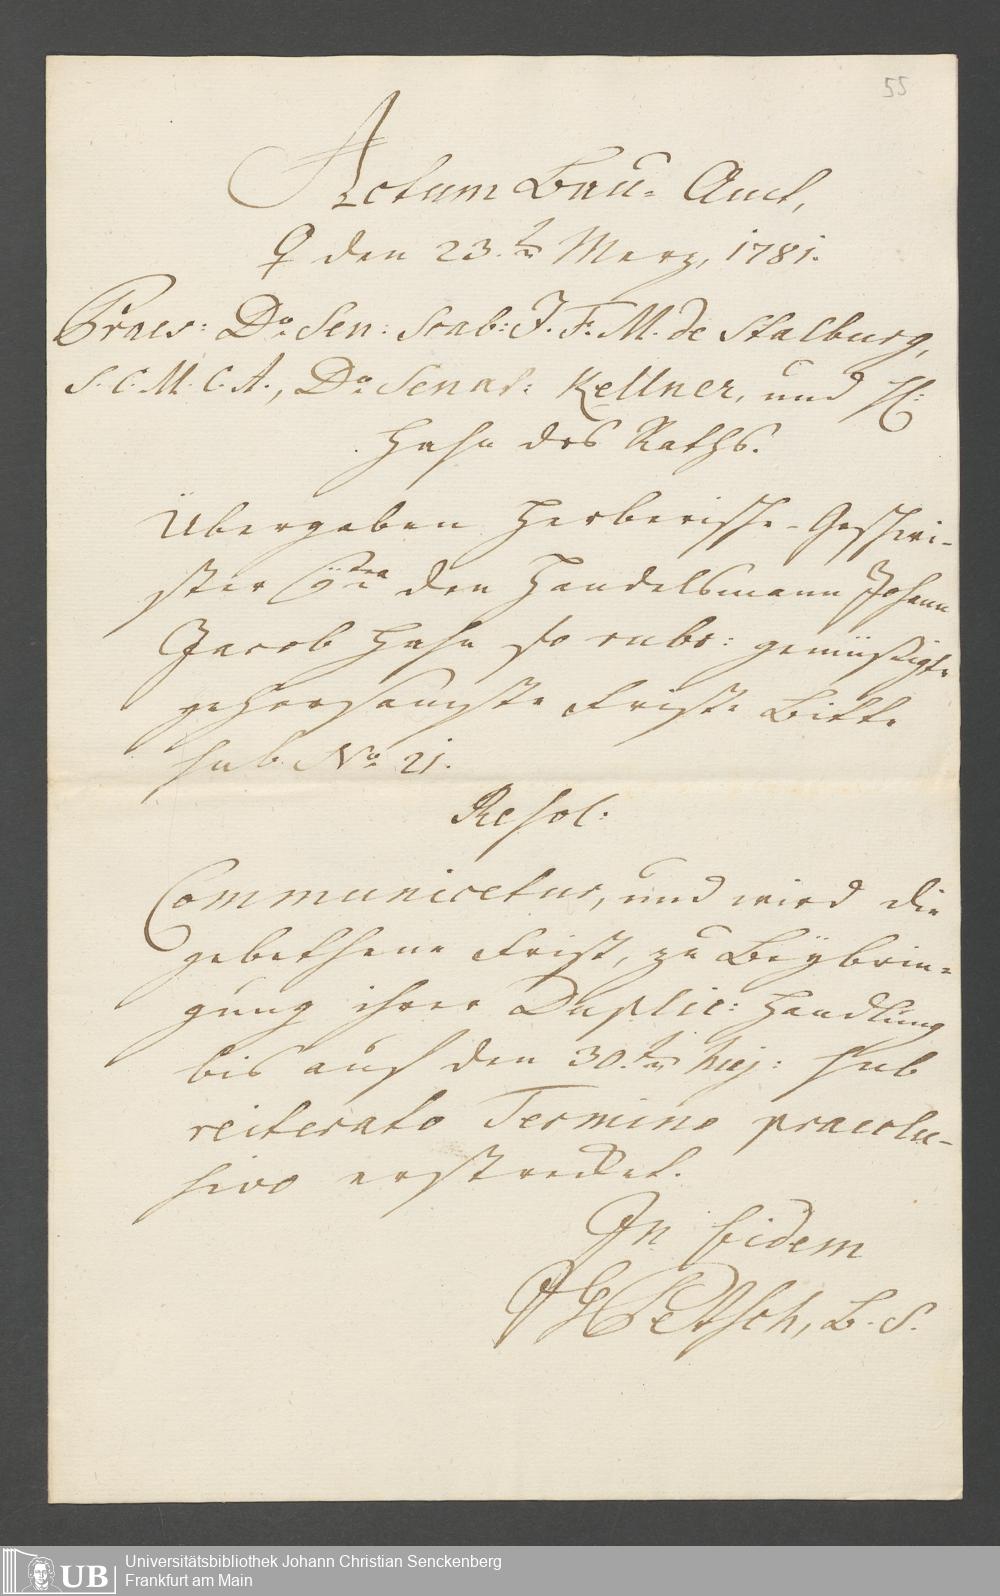 55
Actum Bau- Amt,
♀ den 23.ten Merz, 1781.
Praes: Do. Sen: Scab: J. F. M. de Stalburg,
S. C. M. C. A., Do. Senat: Kellner, und H:
Hahn des Raths.
Übergeben Herberische-Geschwi-
ster Ctra den Handelsmann Johann
Jacob Hahn so rubr: gemüßigte
gehorsamste Frist Bitte
sub No. 21.
Resol:
Communicetur, und wird die
gebethene Frist, zu Beÿbrin-
gung ihrer Duplic: Handlung
bis auf den 30.ten huj: sub
reiterato Termino praeclu-
sivo erstrecket.
In fidem
Petsch, B. S.
UB
Universitätsbibliothek Johann Christian Senckenberg
Frankfurt am Main